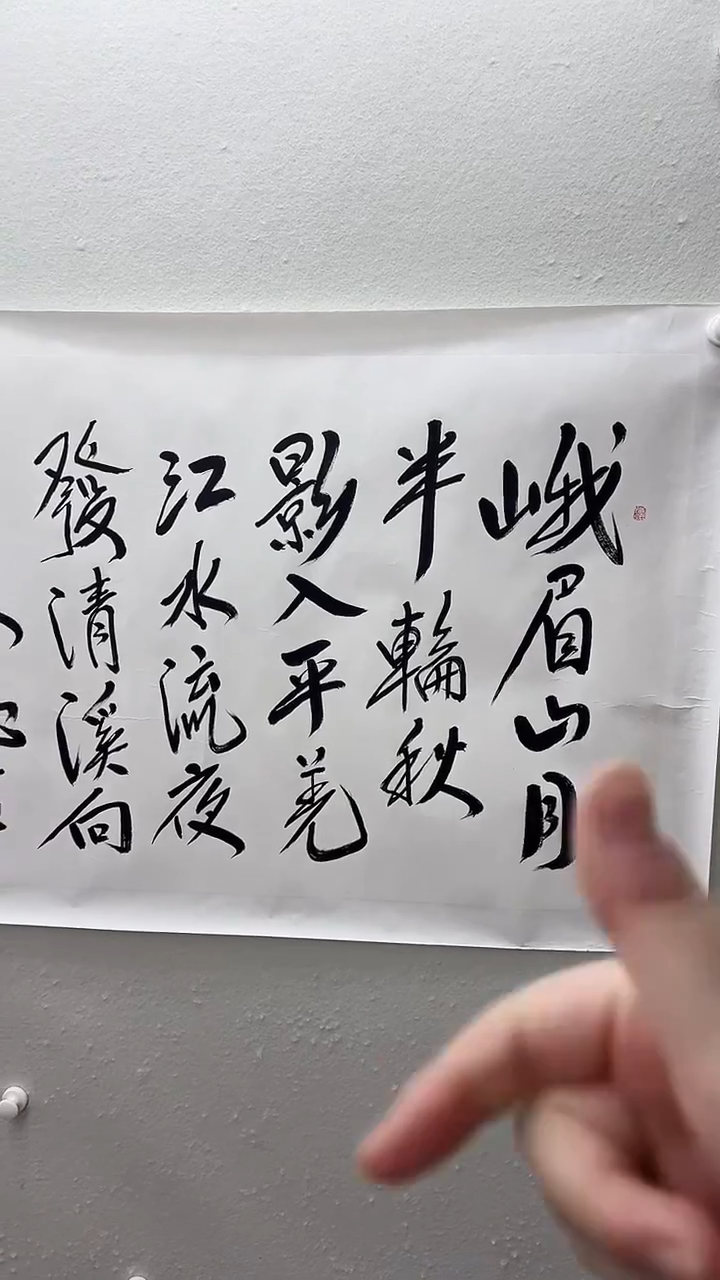 峨眉山月
半輪秋
影入平羌
江水流夜
發清溪向